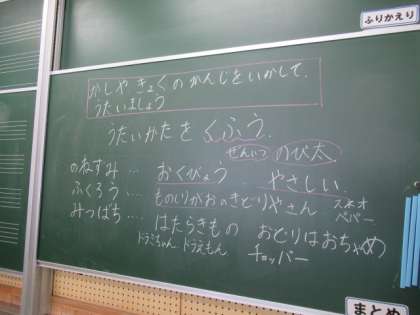 ふりかえり
かしや きょくの かんじをいかして、
うたいましょう
うたいかたを くふう。
ぜんいつ のび太
のねずみ… おくびょう やさしい
ふくろう… ものしりがおの きどりやさん スネオ
ペパー
みつばち… はたらきもの おどりはおちゃめ
ドラミちゃん ドラえもん チョッパー
まとめ